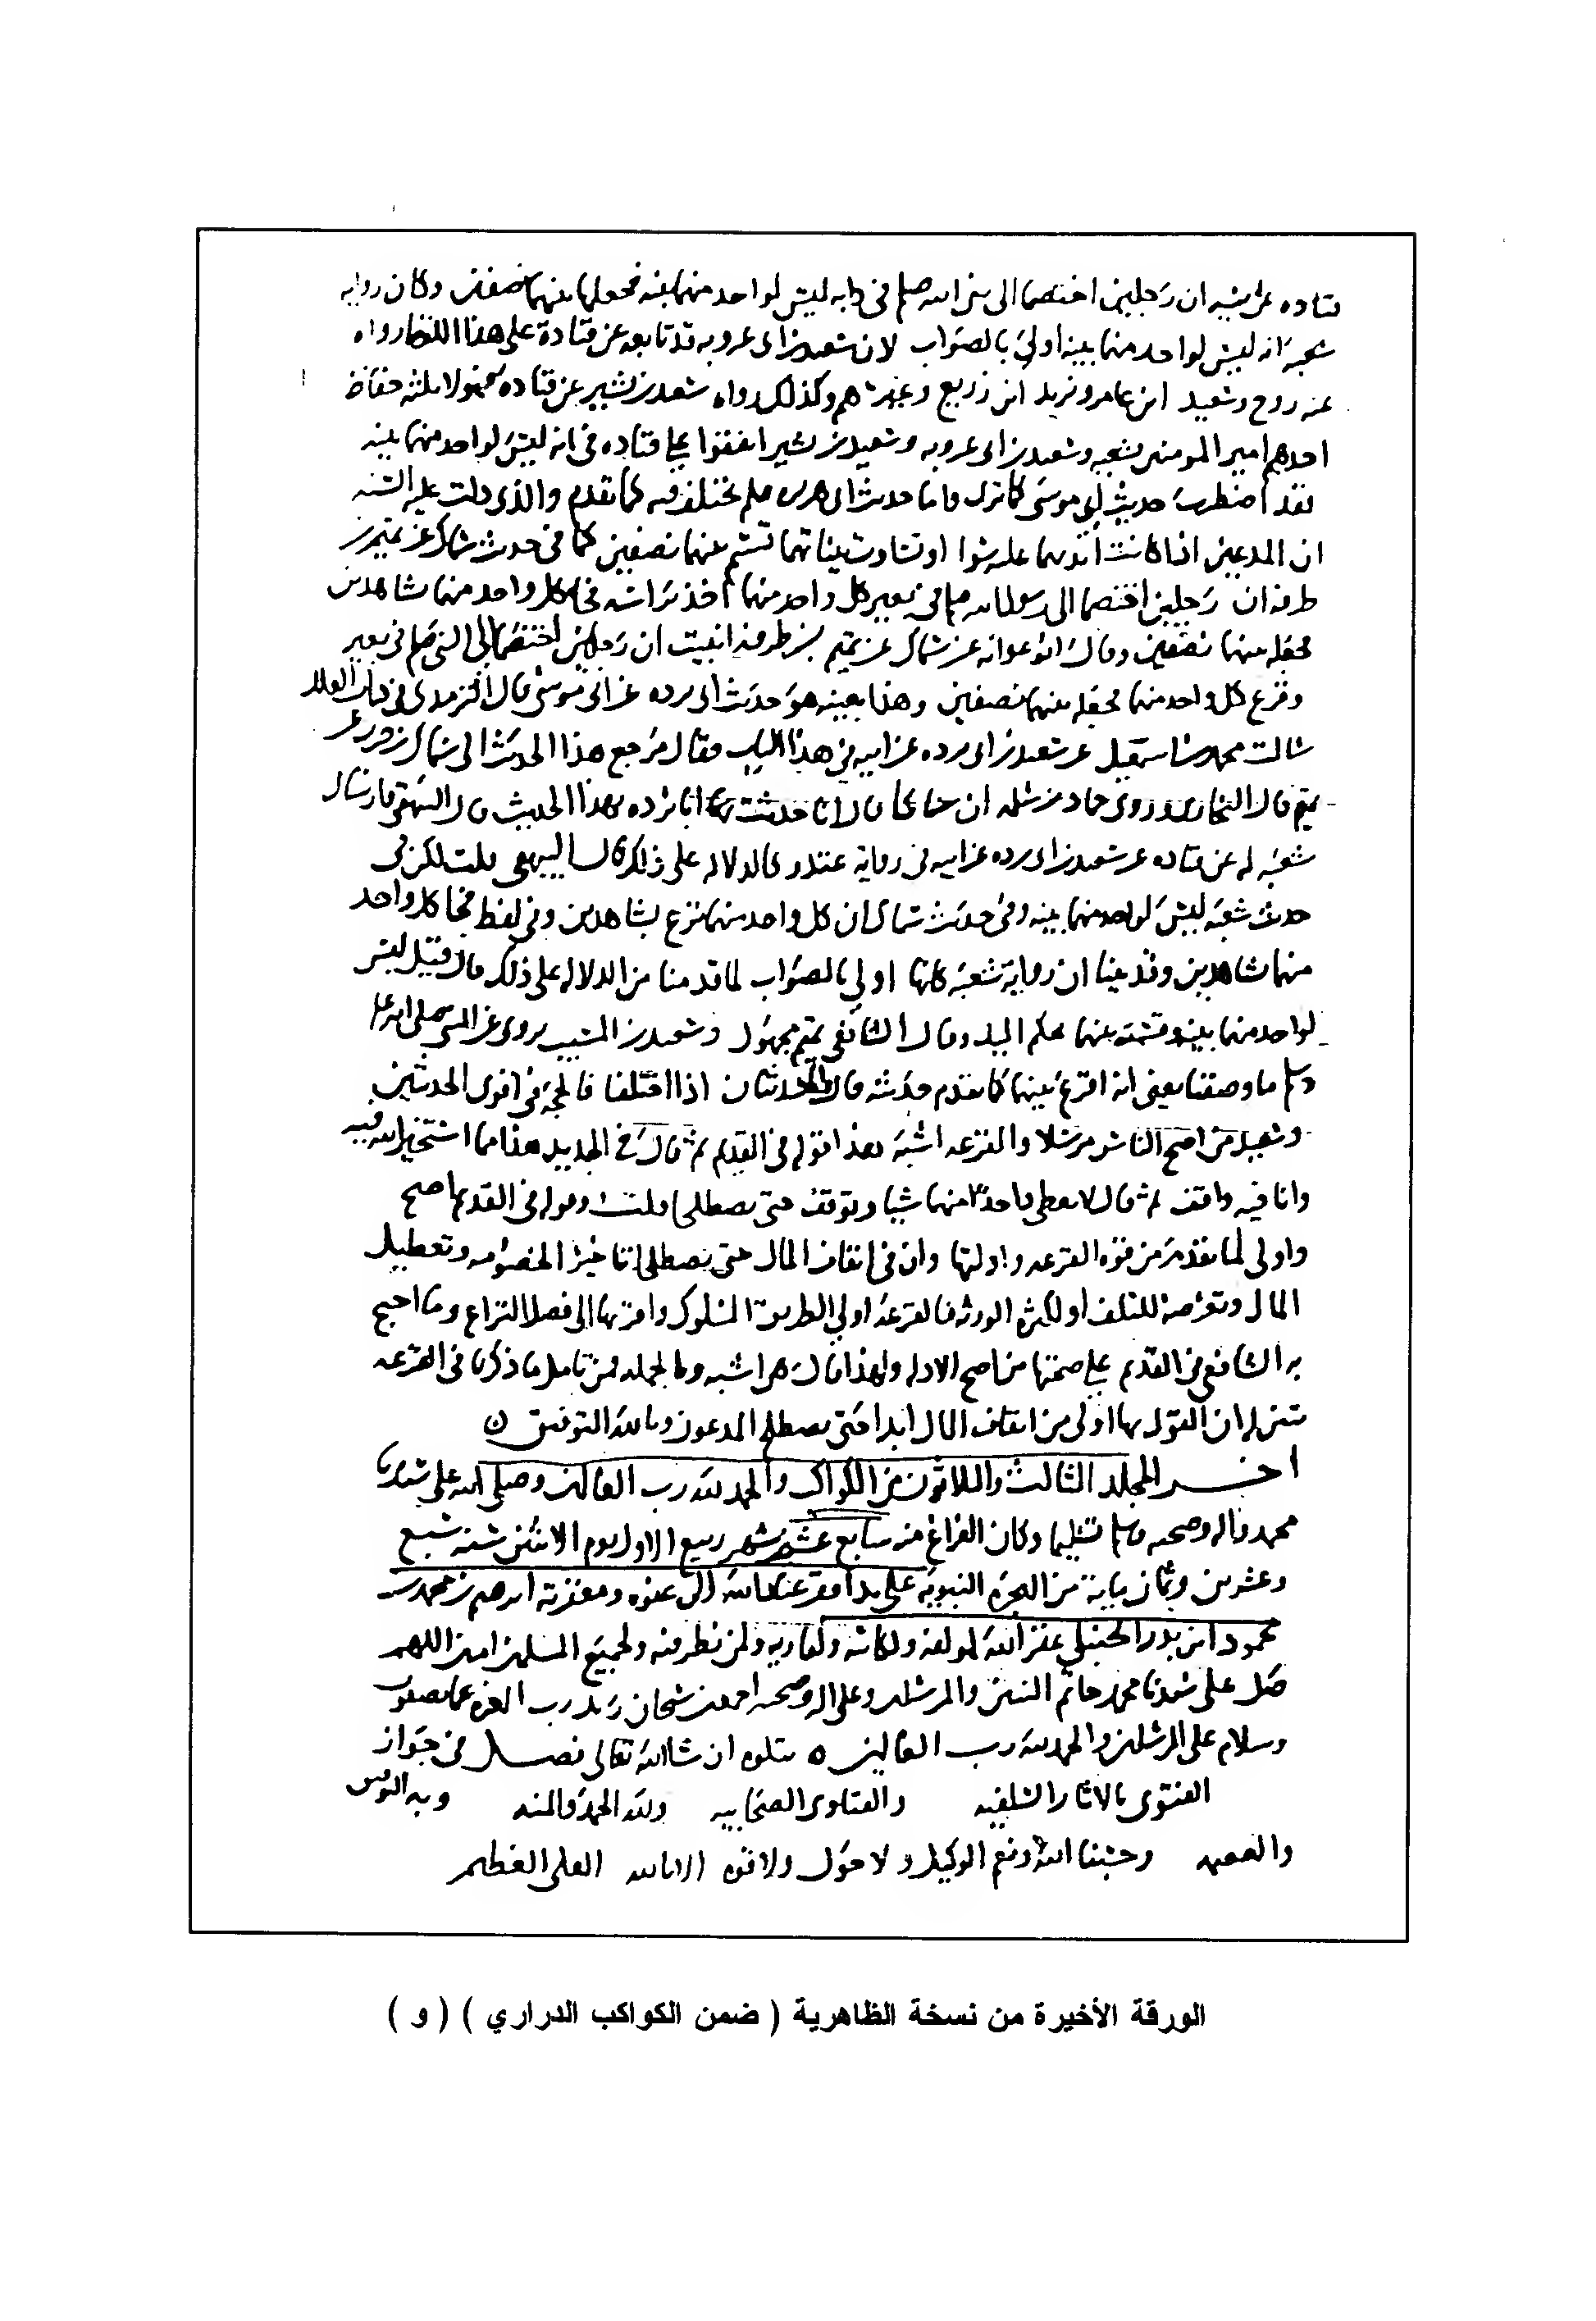 قتاده عن ابيه ان رجلين اختصما الى نبى الله صلم فى دابه ليس لواحد منهما بينه فجعلها بينهما نصفين وكان روايه
شعبه انه ليس لواحد منهما بينه اولى بالصواب لان سعيد بن ابى عروبه قد تابعه عن قتادة على هذا اللفظ رواه
عنه روح وسعيد ابن عامر ويزيد ابن زريع وغيرهم وكذلك رواه سعيد بن بشير عن قتاده فهولا ثلثه حفاظ
احدهم امير المومنين شعبه وسعيد بن ابى عروبه وسعيد بن بشير اتفقوا على قتاده فى انه ليس لواحد منهما بينه
فقد اضطرب حديث ابى موسى كما ترى واما حديث ابى هريره فلم يختلف فيه كما تقدم والذى دلت عليه السنه
ان المدعيين اذا كانت ايديهما عليه سوا او تساوت بيناتهما قسم بينهما نصفين كما فى حديث سماك عن تميم بن
طرفه ان رجلين اختصما الى رسول الله صلم فى بعير كل واحد منهما اخذ براسه فجا كل واحد منهما شاهدين
فجعله بينهما نصفين وقال ابو عوانه عن سماك عن تميم بن طرفه انبيت ان رجلين اختصما الى النبى صلم فى بعير
ونزع كل واحد منهما فجعله بينهما نصفين وهذا بعينه هو حديث ابى برده عن ابى موسى قال الترمذى فى كتاب العلل
سالت محمد بن اسمعيل عن سعيد بن ابى برده عن ابيه فى هذا الباب فقال مرجع هذا الحديث الى سماك بن حرب عن
تميم قال البخارى وروى حماد بن سلمه ان سماكا قال انا حدثت ابا برده بهذا الحديث قال البيهقى وارسال
شعبه له عن قتاده عن سعيد بن ابى برده عن ابيه فى رواية غندر كالدلاله على ذلك قال البيهقى قلت لكن فى
حديث شعبه ليس لواحد منهما بينه وفى حديث سماك ان كل واحد منهما نزع بشاهدين وفى لفظ فجا كل واحد
منهما شاهدين وقد بينا ان رواية شعبه كانها اولى بالصواب لما قدمنا من الدلاله على ذلك قال قتيل ليس
لواحد منهما بينه وقسمته بينهما بحكم اليد وقال الشافعى تميم مجهول وسعيد بن المسيب يروى عن النبى صلى الله عليه
وسلم ما وصفنا يعنى انه اقرع بينهما كما تقدم حديثه قال والحديثان اذا اختلفا فالحجه فى اقوى الحديثين
وسعيد من اصح الناس مرسلا والقرعه اشبه هذا قوله فى القديم ثم قال فى الجديد هذا مما استخير الله فيه
وانا فيه واقف ثم قال لا يعطى واحد منهما شيا ويوقف حتى يصطلحا قلت وقوله فى القديم اصح
واولى لما تقدم من قوه القرعه وادلتها وان فى ايقاف المال حتى يصطلحا تاخير الخصومه وتعطيل
المال وتعرضه للتلف او لكثره الورثه فالقرعه اولى الطريق المسلوك واقربها الى فصل النزاع وما احتج
به الشافعى فى القديم على صحتها من اصح الادله ولهذا قال هى اشبه وبالجمله فمن تامل ما ذكرنا فى القرعه
تبين له ان القول بها اولى من ايقاف المال ابدا حتى يصطلح المدعون وبالله التوفيق
اخر المجلد الثالث والثلاثون من الكواكب والحمد لله رب العالمين وصلى الله على سيدنا
محمد واله وصحبه وسلم تسليما وكان الفراغ منه سابع عشر شهر ربيع الاول يوم الاثنين سنه سبع
وعشرين وثمان ماية من الهجره النبويه على يد افقر عباد الله الى عفوه ومغفرته ابرهيم بن محمد بن
محمود ابن بدر الحنبلى غفر الله لمولفه ولكاتبه ولقاريه ولمن نظر فيه ولجميع المسلمين امين اللهم
صل على سيدنا محمد خاتم النبيين والمرسلين وعلى اله وصحبه اجمعين سبحان ربك رب العزه عما يصفون
وسلام على المرسلين والحمد لله رب العالمين ٥ يتلوه ان شا الله تعالى فصل فى جواز
الفتوى بالاثار السلفيه والفتاوى الصحابيه ولله الحمد والمنه وبه التوفيق
والعصمه وحسبنا الله ونعم الوكيل ولا حول ولا قوه الا بالله العلى العظيم
الورقة الأخيرة من نسخة الظاهرية ( ضمن الكواكب الدراري ) ( و )